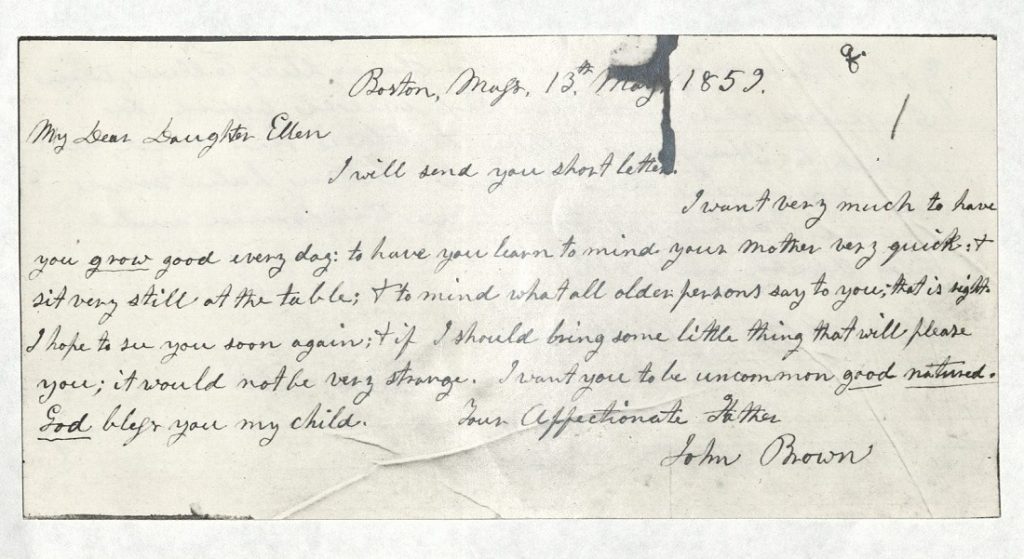 Boston, Mass. 13th May, 1859.
My Dear Daughter Ellen
I will send you short letter.
I want very much to have
you grow good every day: to have you learn to mind your mother very quick: &
sit very still at the table; & to mind what all older persons say to you; that is right.
I hope to see you soon again; & if I should bring some little thing that will please
you; it would not be very strange. I want you to be uncommon good natured.
God bless you my child. Your Affectionate Father
John Brown